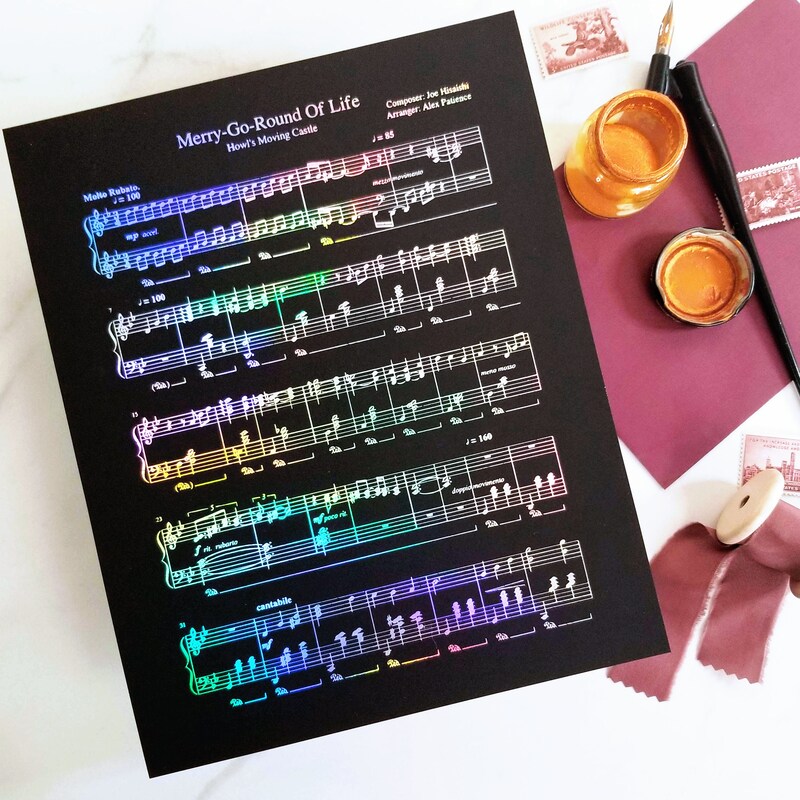 Merry-Go-Round Of Life
Howl's Moving Castle
Composer: Joe Hisaishi
Arranger: Alex Patience
Molto Rubato,
♩ = 100
♩ = 85
mp accel.
mezzo movimento
7
♩ = 100
15
meno mosso
23
♩ = 160
3
3
f rit. rubarto
mf poco rit.
doppio movimento
31
cantabile
mf
UNITED STATES POSTAGE